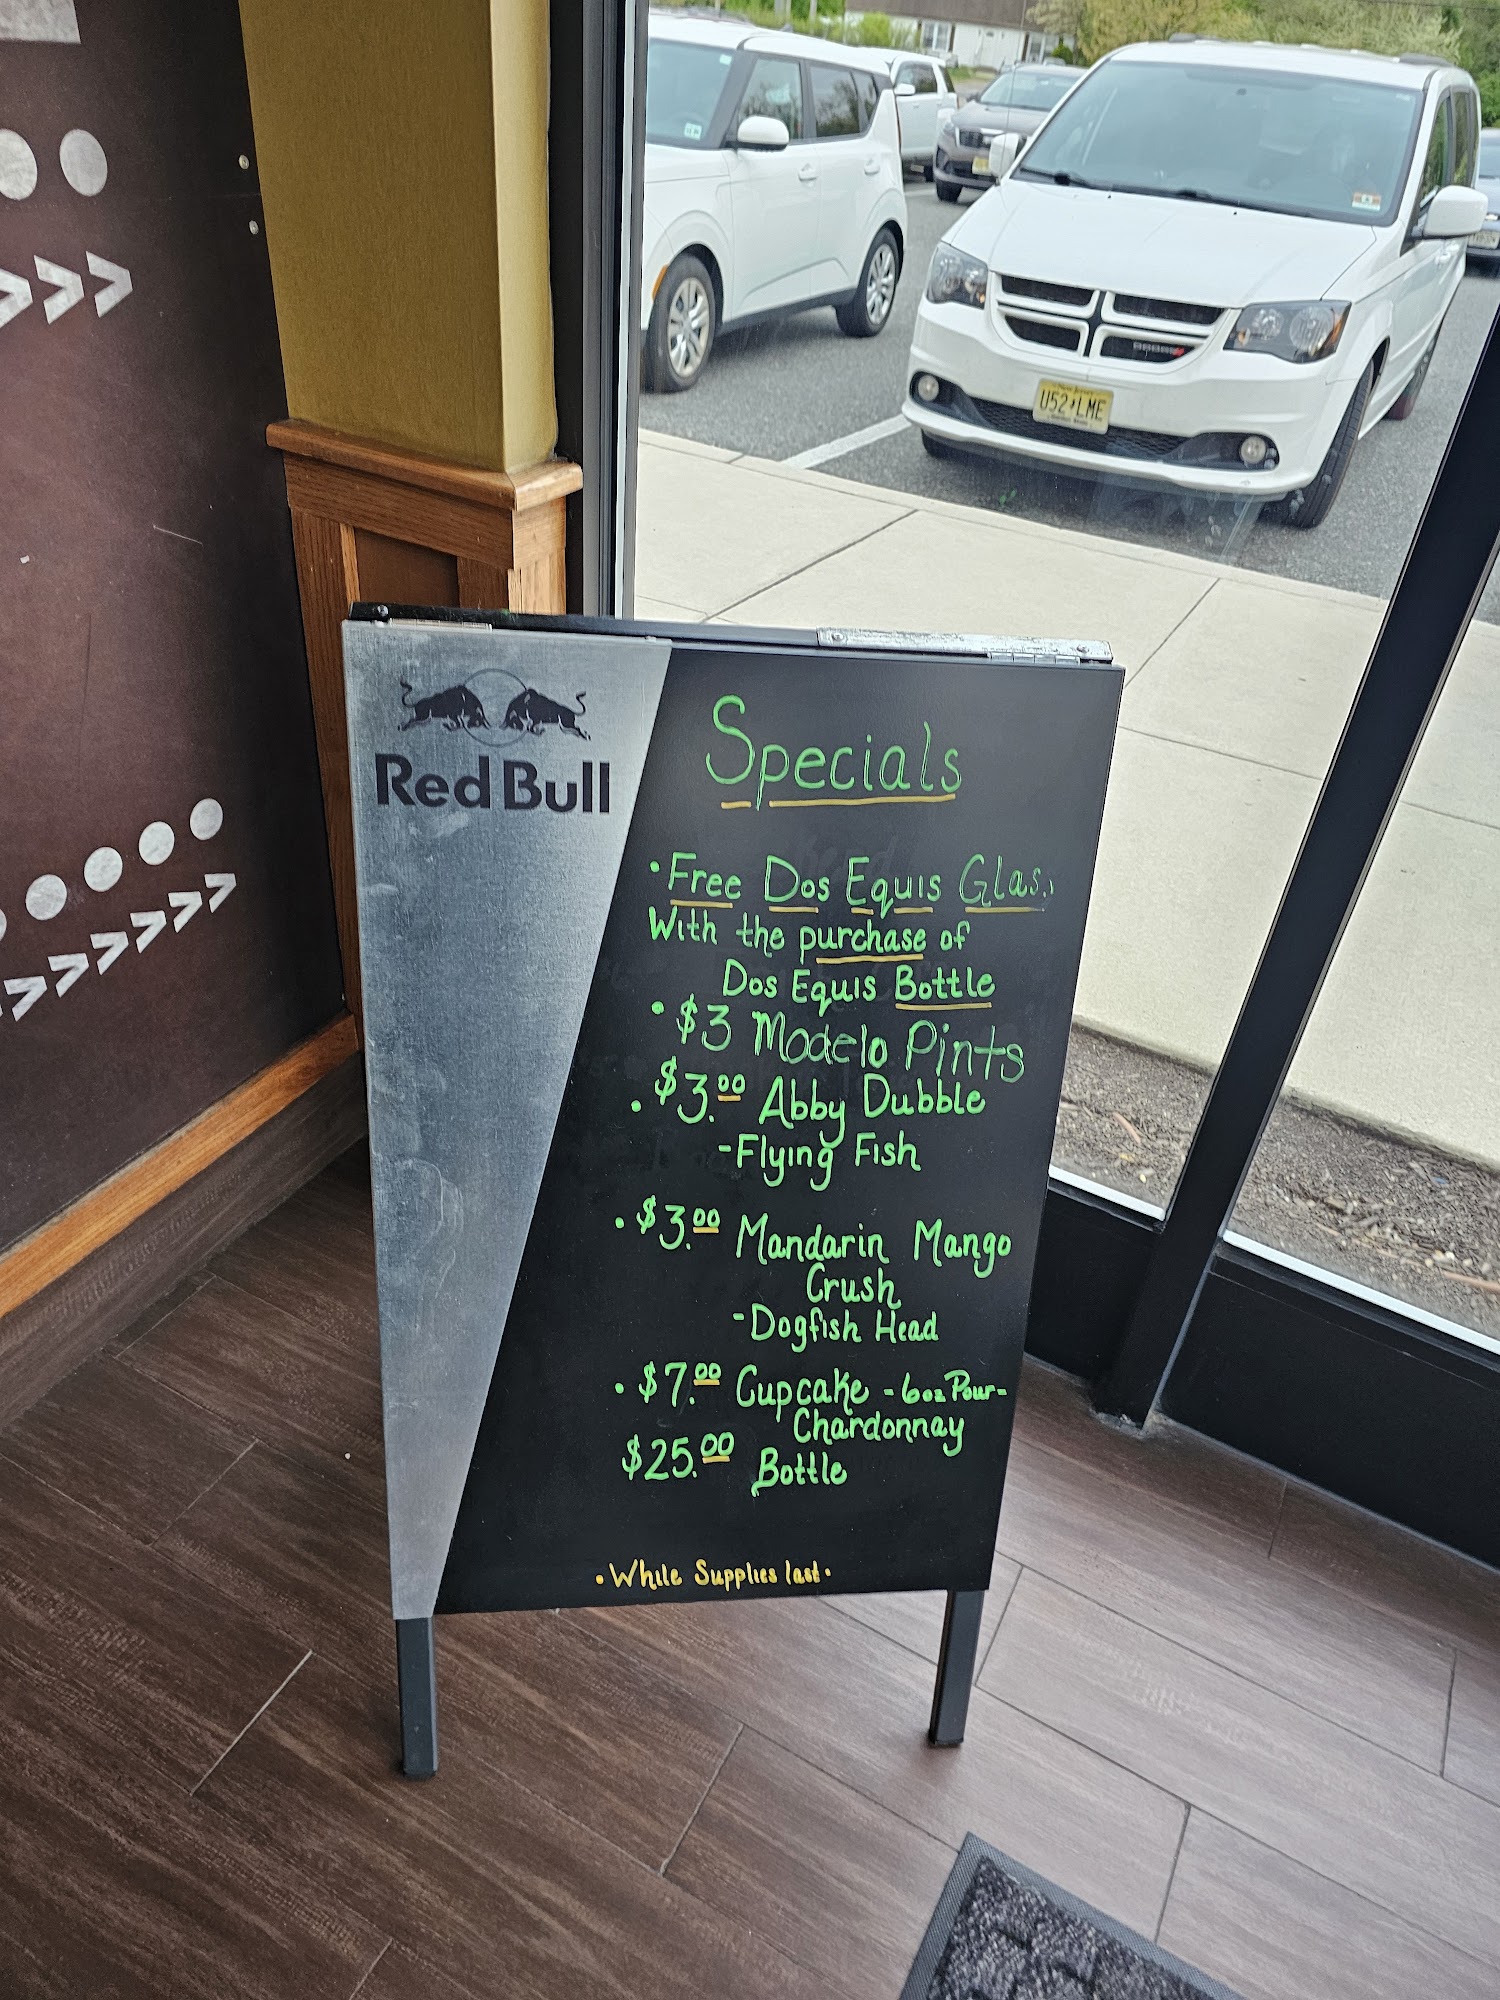 U52 LME
Red Bull
Specials
• Free Dos Equis
With the purchase of
Dos Equis Bottle
• $3 Modelo Pints
• $3.00 Abby Dubble
- Flying Fish
• $3.00 Mandarin Mango
Crush
- Dogfish Head
• $7.00 Cupcake - 6oz Pour -
Chardonnay
$25.00 Bottle
• While Supplies last •